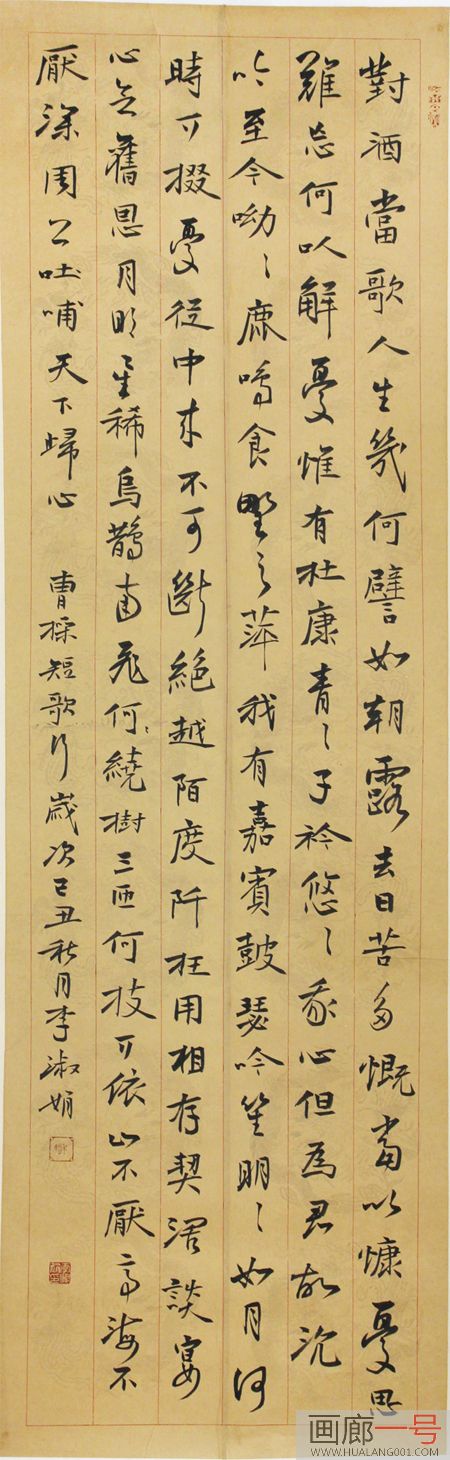 對酒當歌人生幾何譬如朝露去日苦多慨當以慷憂思
難忘何以解憂惟有杜康青〻子衿悠〻我心但為君故沉
吟至今呦〻鹿鳴食野之萍我有嘉賓鼓瑟吟笙明〻如月何
時可掇憂從中來不可斷絕越陌度阡枉用相存契闊談宴
心念舊恩月明星稀烏鵲南飛何繞樹三匝何枝可依山不厭高海不
厭深周公吐哺天下歸心 曹操短歌行 歲次己丑秋月李淑娟
画廊一号
WWW.HUALANG001.COM